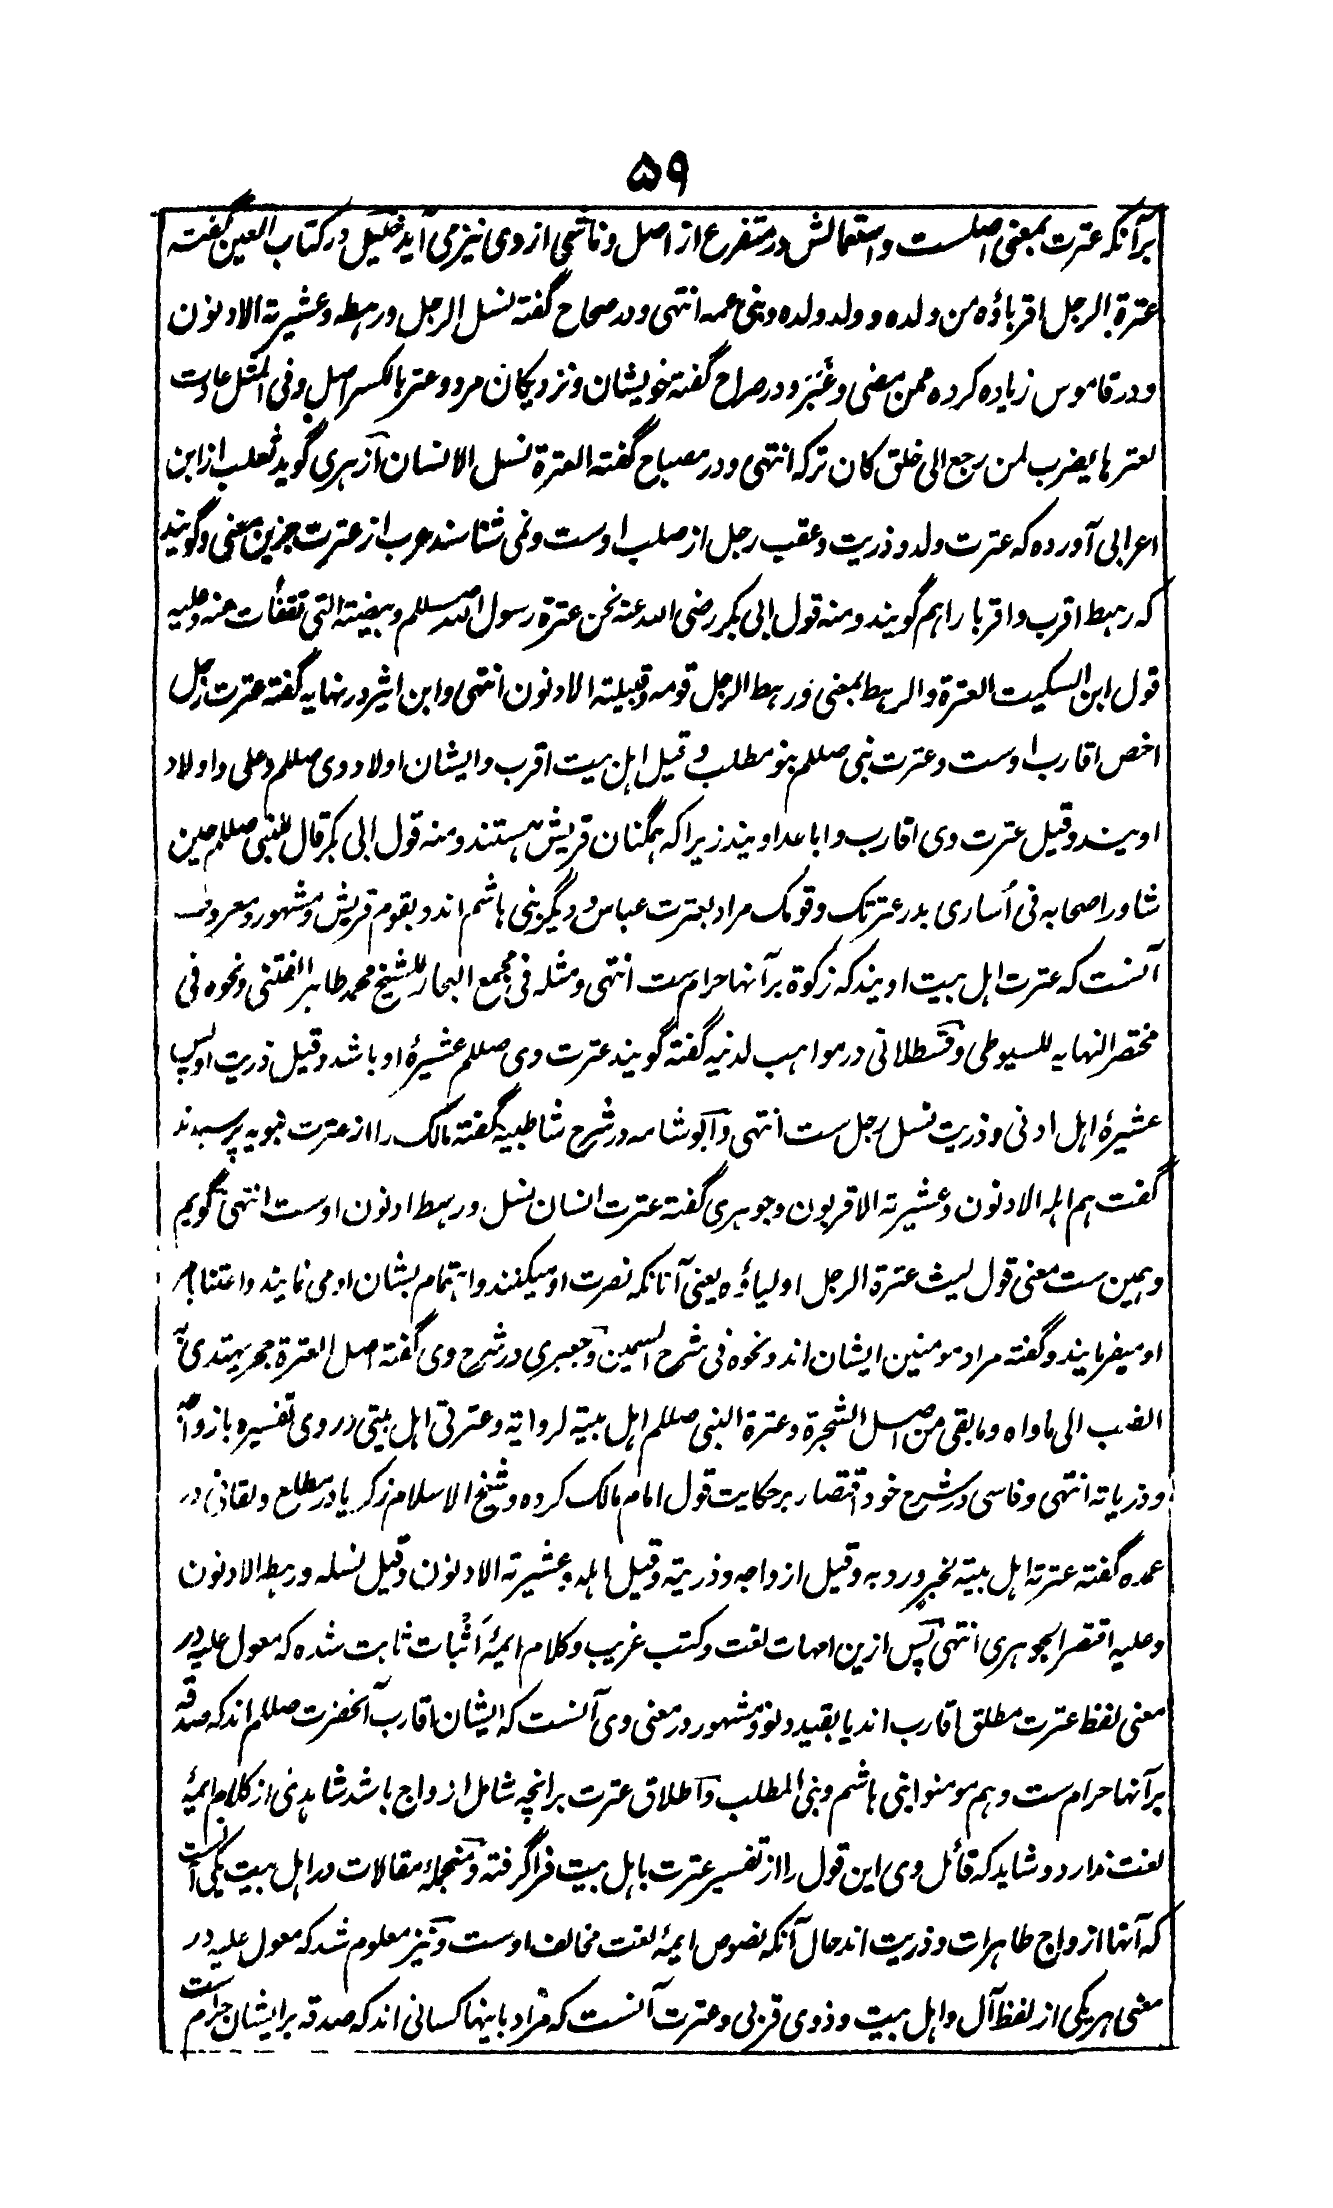 ۵۹
برآنکه عترت بمعنی اصلست و استعمالش در متفرع از اصل و ناشی ازوی نیز می آید خلیل در کتاب العین گفته
عترة الرجل اقرباؤه من ولده و ولد ولده و بنی عمه انتهی و در صحاح گفته نسل الرجل و رهطه و عشیرته الادنون
و در قاموس زیاده کرده ممن مضی و غَبَرَ و در صراح گفته خویشان و نزدیکان مرد و عتر بالکسر اصل و فی المثل عادت
لعترها یضرب لمن رجع الی خلق کان ترکه انتهی و در مصباح گفته العترة نسل الانسان ازهری گوید ثعلب از ابن
اعرابی آورده که عترت ولد و ذریت و عقب رجل از صلب اوست و نمی شناسند عرب از عترت جزین معنی و گویند
که رهط اقرب و اقربا را هم گویند و منه قول ابی بکر رضی الله عنه نحن عترة رسول الله صللم و بیضته التی تفقأت عنه و علیه
قول ابن السکیت العترة و الرهط بمعنی و رهط الرجل قومه و قبیلته الادنون انتهی و ابن اثیر در نهایه گفته عترت رجل
اخص اقارب اوست و عترت نبی صللم بنو مطلب و قیل اهل بیت اقرب و ایشان اولاد وی صللم و علی و اولاد
اویند و قیل عترت وی اقارب و اباعد اویند زیرا که همگنان قریش هستند و منه قول ابی بکر قال للنبی صللم حین
شاور اصحابه فی أساری بدر عترتک و قومک مراد بعترت عباس و دیگر بنی هاشم اند و بقوم قریش و مشهور و معروف
آنست که عترت اهل بیت اویند که زکوة برآنها حرام ست انتهی و مثله فی مجمع البحار للشیخ محمد طاهر الفتنی و نحوه فی
مختصر النهایه للسیوطی و قسطلانی در مواهب لدنیه گفته گویند عترت وی صللم عشیرهٔ او باشد و قیل ذریت او پس
عشیرهٔ اهل ادنی و ذریت نسل رجل ست انتهی و ابو شامه در شرح شاطبیه گفته مالک را از عترت نبویه پرسیدند
گفت هم اهله الادنون و عشیرته الاقربون و جوهری گفته عترت انسان نسل و رهط ادنون اوست انتهی گویم
و همین ست معنی قول لیث عترة الرجل اولیاؤه یعنی آنانکه نصرت او میکنند و اهتمام بشان او می نمایند و اعتنا بامر
او میفرمایند و گفته مراد مومنین ایشان اند و نحوه فی شرح السمین و جعبری در شرح وی گفته اصل العترة حجر یهتدی به
الضب الی ماواه و ما بقی من اصل الشجرة و عترة النبی صللم اهل بیته لروایة و عترتی اهل بیتی در وی تفسیره بازواجه
و ذریاته انتهی و فاسی در شرح خود اقتصار بر حکایت قول امام مالک کرده و شیخ الاسلام زکریا در مطلع و لقانی در
عمده گفته عترته اهل بیته لخبر ورد به و قیل ازواجه و ذریته و قیل اهله و عشیرته الادنون و قیل نسله و رهطه الادنون
و علیه اقتصر الجوهری انتهی پس ازین امهات لغت و کتب غریب و کلام ایمهٔ اَثْبات ثابت شده که معول علیه در
معنی لفظ عترت مطلق اقارب اند یا بقید دنو و مشهور در معنی وی آنست که ایشان اقارب آنحضرت صللم اند که صدقه
برآنها حرام ست و هم مومنوا بنی هاشم و بنی المطلب و اطلاق عترت برانچه شامل ازواج باشد شاهدی از کلام ایمهٔ
لغت ندارد و شاید که قائل وی این قول را از تفسیر عترت باهل بیت فرا گرفته و منجملهٔ مقالات در اهل بیت یکی آنست
که آنها ازواج طاهرات و ذریت اند حال آنکه نصوص ایمهٔ لغت مخالف اوست و نیز معلوم شد که معول علیه در
معنی هر یکی از لفظ آل و اهل بیت و ذوی قربی و عترت آنست که مراد باینها کسانی اند که صدقه برایشان حرام ست